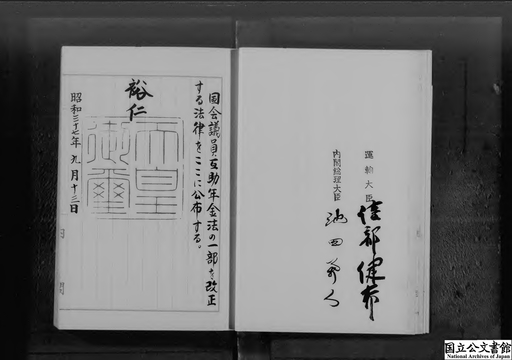 運輸大臣
佳部健吉
内閣総理大臣
池田勇人
国会議員互助年金法の一部を改正
する法律をここに公布する。
裕仁
天皇
御璽
昭和三十七年九月十三日
国立公文書館
National Archives of Japan